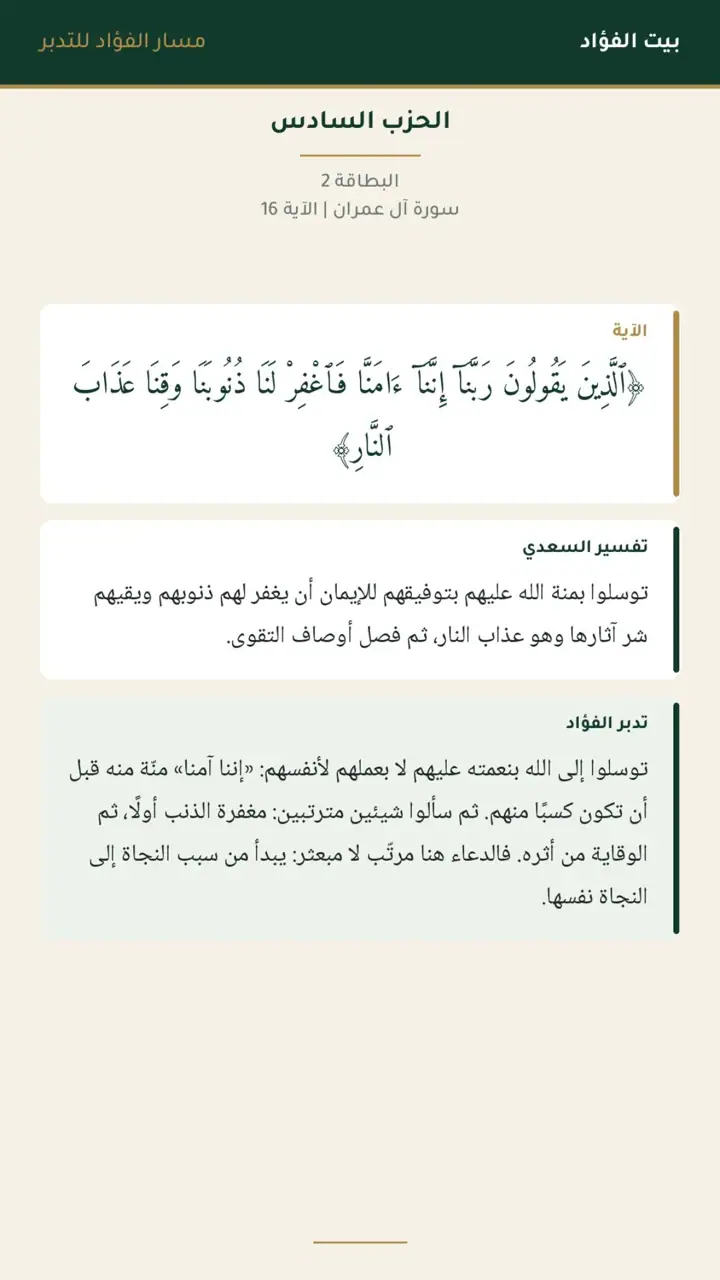 بيت الفؤاد
مسار الفؤاد للتدبر
الحزب السادس
البطاقة 2
سورة آل عمران | الآية 16
الآية
﴿ٱلَّذِينَ يَقُولُونَ رَبَّنَآ إِنَّنَآ ءَامَنَّا فَٱغْفِرْ لَنَا ذُنُوبَنَا وَقِنَا عَذَابَ
ٱلنَّارِ﴾
تفسير السعدي
توسلوا بمنة الله عليهم بتوفيقهم للإيمان أن يغفر لهم ذنوبهم ويقيهم
شر آثارها وهو عذاب النار، ثم فصل أوصاف التقوى.
تدبر الفؤاد
توسلوا إلى الله بنعمته عليهم لا بعملهم لأنفسهم: «إننا آمنا» منّة منه قبل
أن تكون كسبًا منهم. ثم سألوا شيئين مترتبين: مغفرة الذنب أولًا، ثم
الوقاية من أثره. فالدعاء هنا مرتّب لا مبعثر: يبدأ من سبب النجاة إلى
النجاة نفسها.